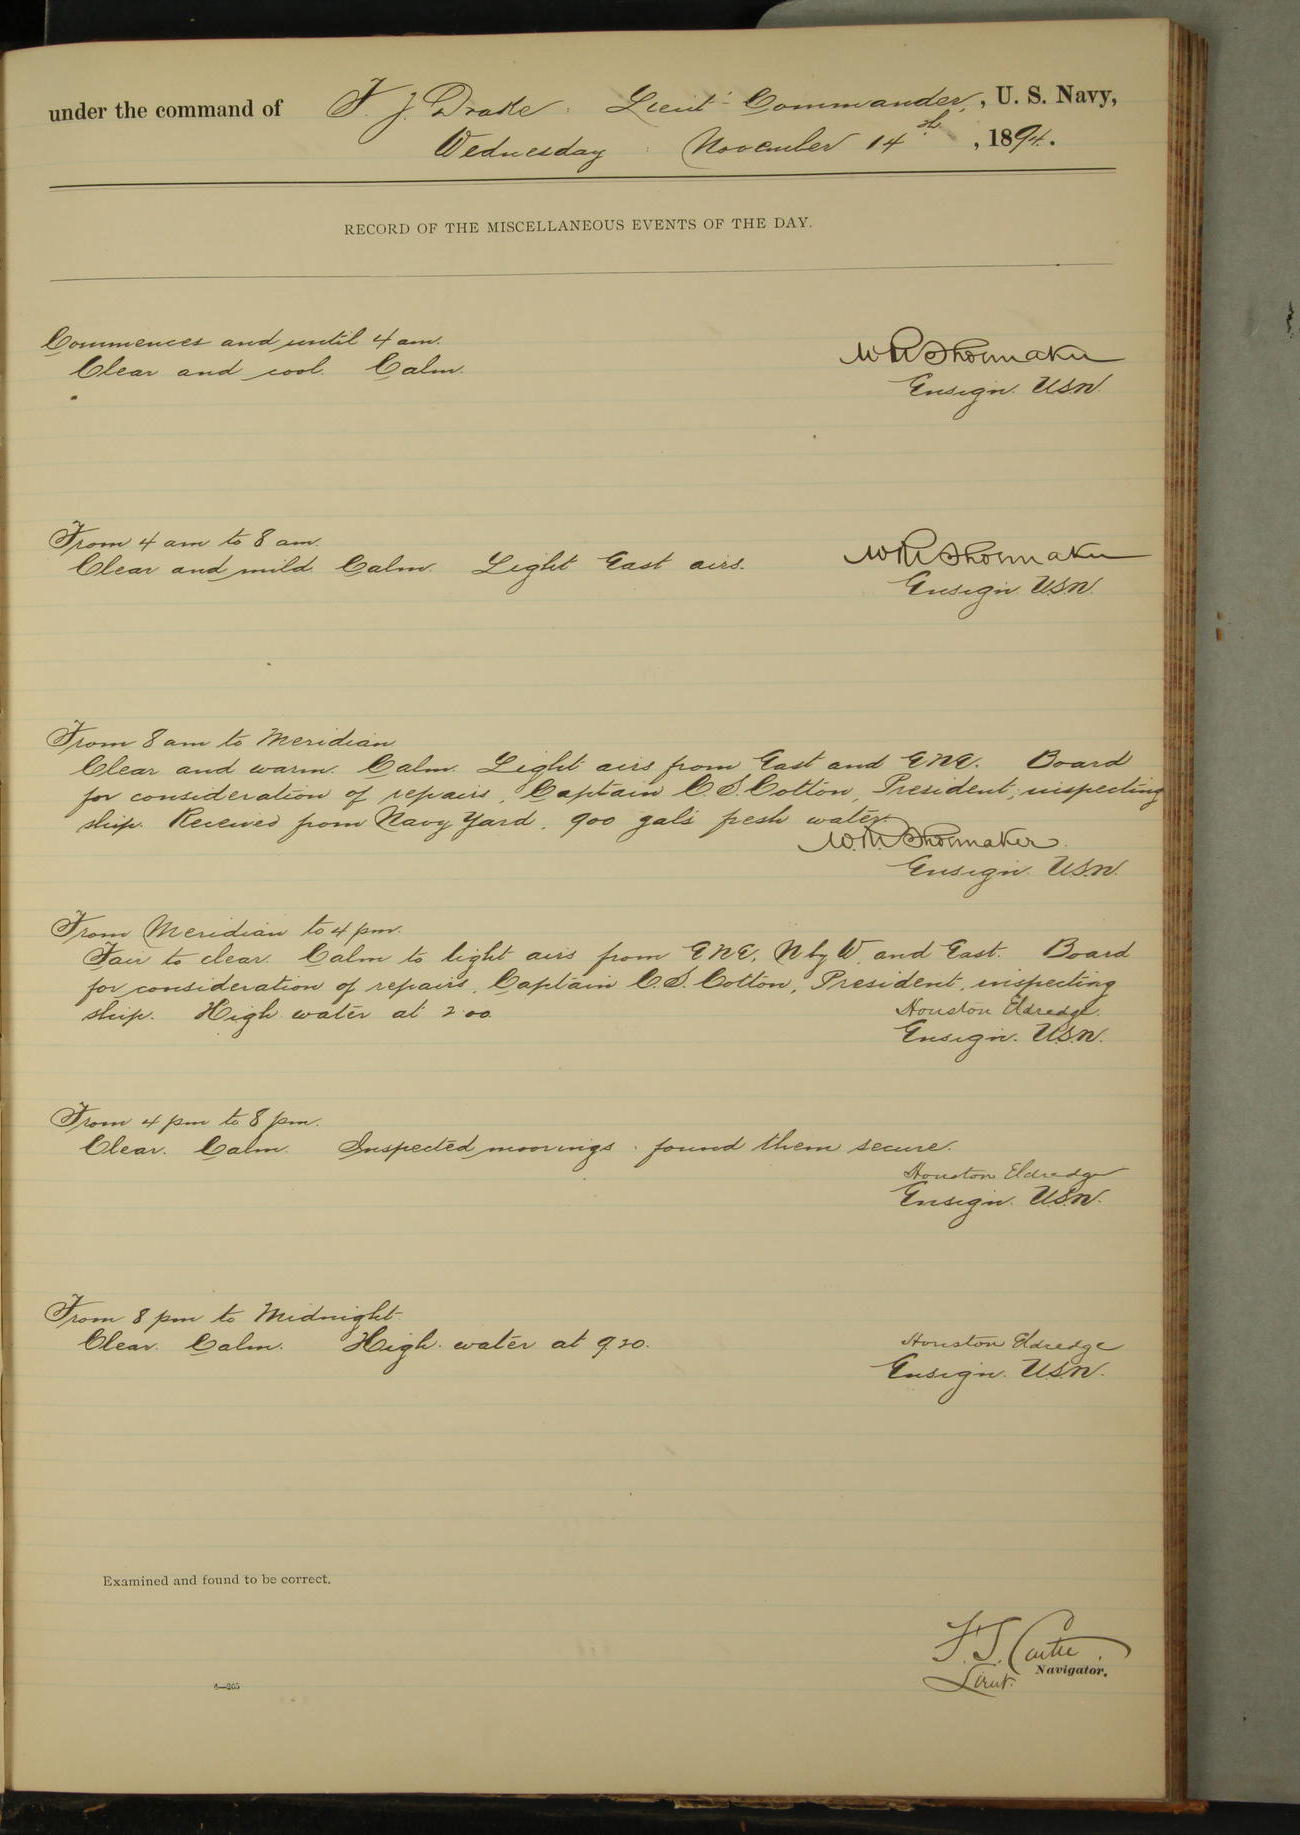 under the command of F. J. Drake. Lieut-Commander, , U. S. Navy,
Wednesday November 14th , 1894.
RECORD OF THE MISCELLANEOUS EVENTS OF THE DAY.
Commences and until 4 am.
Clear and cool. Calm.
W R Shoemaker
Ensign. U.S.N.
From 4 am to 8 am.
Clear and mild. Calm. Light East airs.
W R Shoemaker
Ensign U.S.N.
From 8 am to Meridian
Clear and warm. Calm. Light airs from East and ENE. Board
for consideration of repairs, Captain C. S. Cotton, President, inspecting
ship. Received from Navy Yard, 900 gals fresh water.
W. R. Shoemaker.
Ensign. U.S.N.
From Meridian to 4 pm.
Fair to clear. Calm to light airs from ENE, N by W, and East. Board
for consideration of repairs, Captain C. S. Cotton, President, inspecting
ship. High water at 2.00
Houston Eldredge.
Ensign. U.S.N.
From 4 pm to 8 pm.
Clear. Calm. Inspected moorings. found them secure.
Houston Eldredge
Ensign. U.S.N.
From 8 pm to Midnight
Clear. Calm. High water at 9.20.
Houston Eldredge
Ensign. U.S.N.
Examined and found to be correct.
F. J. Carter.
Lieut. Navigator.